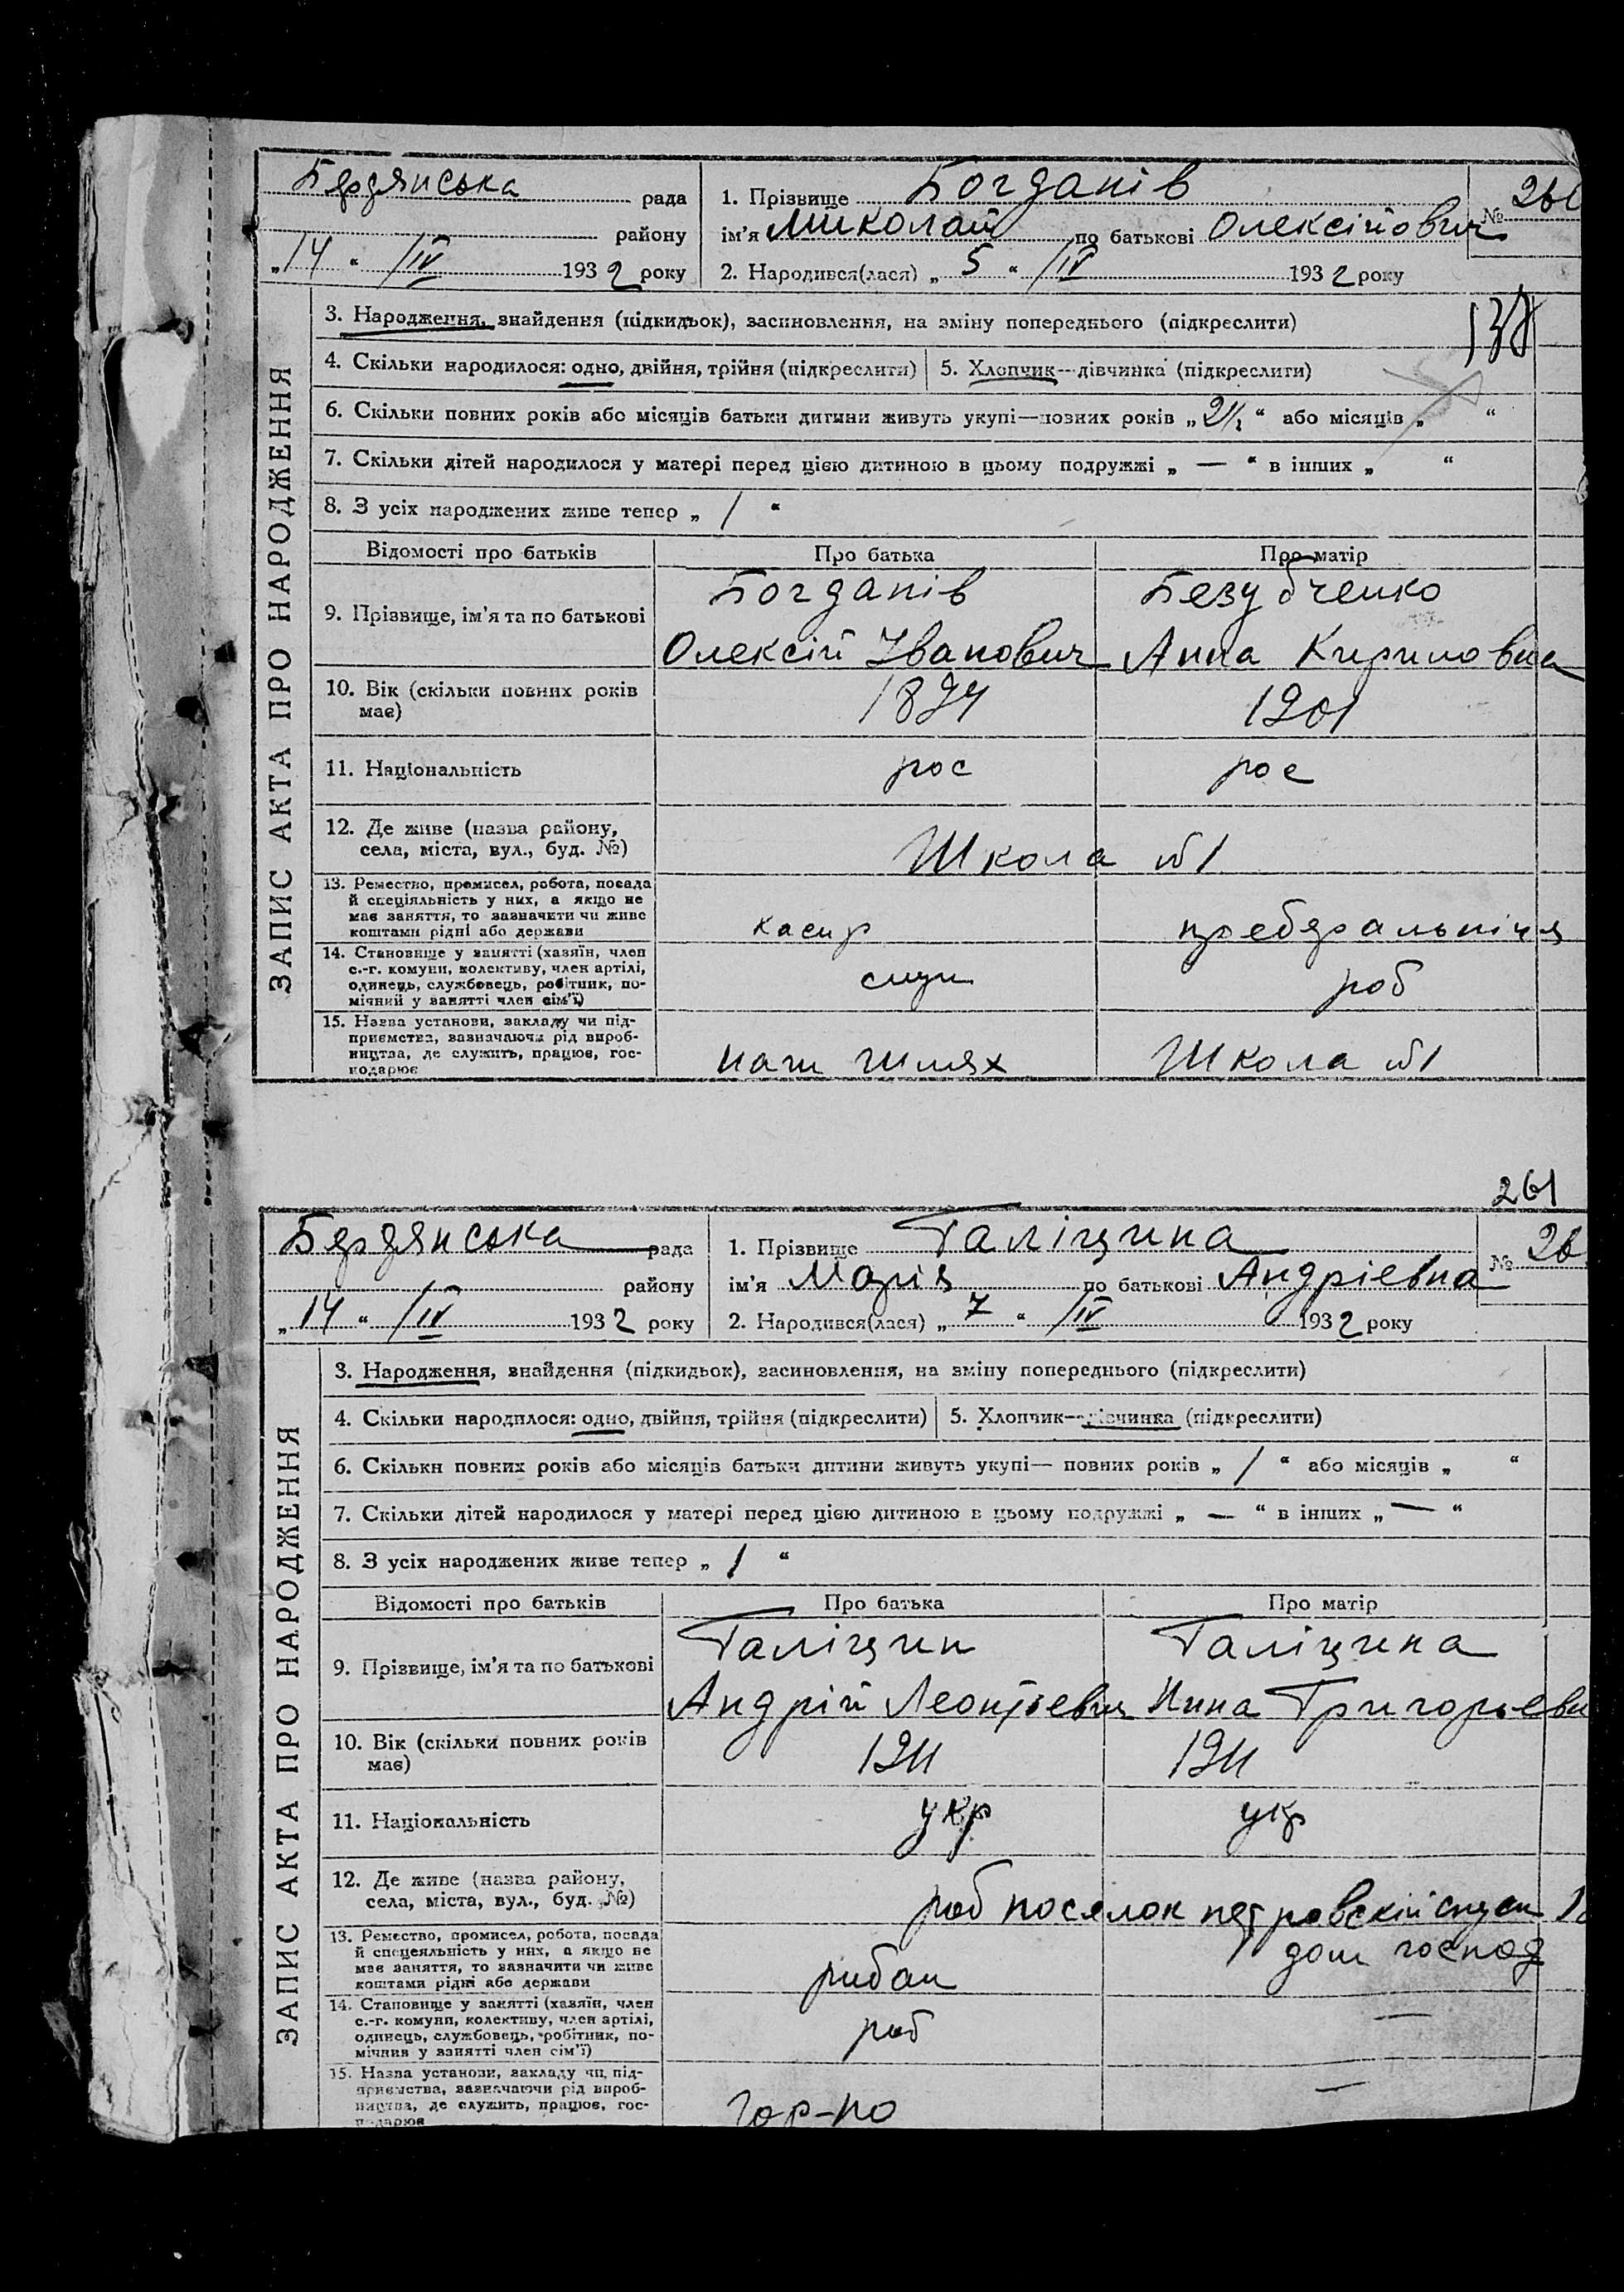 Бердянська рада
району
„14“ /IV 1932 року
1. Прізвище Богданів
ім’я Миколай по батькові Олексійович
№
2. Народився(лася) „5“ /IV 1932 року
ЗАПИС АКТА ПРО НАРОДЖЕННЯ
3. Народження, знайдення (підкидьок), засиновлення, на зміну попереднього (підкреслити)
138
4. Скільки народилося: одно, двійня, трійня (підкреслити) 5. Хлопчик—дівчинка (підкреслити)
6. Скільки повних років або місяців батьки дитини живуть укупі—повних років „2½“ або місяців „ “
7. Скільки дітей народилося у матері перед цією дитиною в цьому подружжі „—“ в інших „ “
8. З усіх народжених живе тепер „1“
Відомості про батьків Про батька Про матір
9. Прізвище, ім’я та по батькові
Богданів
Олексій Іванович
Безубченко
Анна Кириловна
10. Вік (скільки повних років
має)
1894 1901
11. Національність рос рос
12. Де живе (назва району,
села, міста, вул., буд. №)
Школа №1
13. Ремество, промисел, робота, посада
й спеціяльність у них, а якщо не
має заняття, то зазначити чи живе
коштами рідні або держави
касир
14. Становище у занятті (хазяїн, член
с.-г. комуни, колективу, член артілі,
одинець, службовець, робітник, по-
мічний у занятті член сім’ї)
служ роб
15. Назва установи, закладу чи під-
приємства, зазначаючи рід вироб-
ництва, де служить, працює, гос-
подарює
наш шлях Школа №1
261
Бердянська рада
району
„14“ /IV 1932 року
1. Прізвище Галіцина
ім’я Марія по батькові Андріевна
№ 26
2. Народився(лася) „7“ /IV 1932 року
ЗАПИС АКТА ПРО НАРОДЖЕННЯ
3. Народження, знайдення (підкидьок), засиновлення, на зміну попереднього (підкреслити)
4. Скільки народилося: одно, двійня, трійня (підкреслити) 5. Хлопчик—дівчинка (підкреслити)
6. Скільки повних років або місяців батьки дитини живуть укупі— повних років „1“ або місяців „ “
7. Скільки дітей народилося у матері перед цією дитиною в цьому подружжі „—“ в інших „—“
8. З усіх народжених живе тепер „1“
Відомості про батьків Про батька Про матір
9. Прізвище, ім’я та по батькові
Галіцин
Андрій Леонтьевич
Галіцина
Нина Григорьевн
10. Вік (скільки повних років
має)
1911 1911
11. Національність укр укр
12. Де живе (назва району,
села, міста, вул., буд. №)
роб поселок петровскій спуск
13. Ремество, промисел, робота, посада
й спецеяльність у них, а якщо не
має заняття, то зазначити чи живе
коштами рідні або держави
рибак дом господ
14. Становище у занятті (хазяїн, член
с.-г. комуни, колективу, член артілі,
одинець, службовець, робітник, по-
мічнив у занятті член сім’ї)
роб —
15. Назва установи, закладу чи під-
приємства, зазначаючи рід вироб-
ництва, де служить, працює, гос-
подарює
Гор-по —